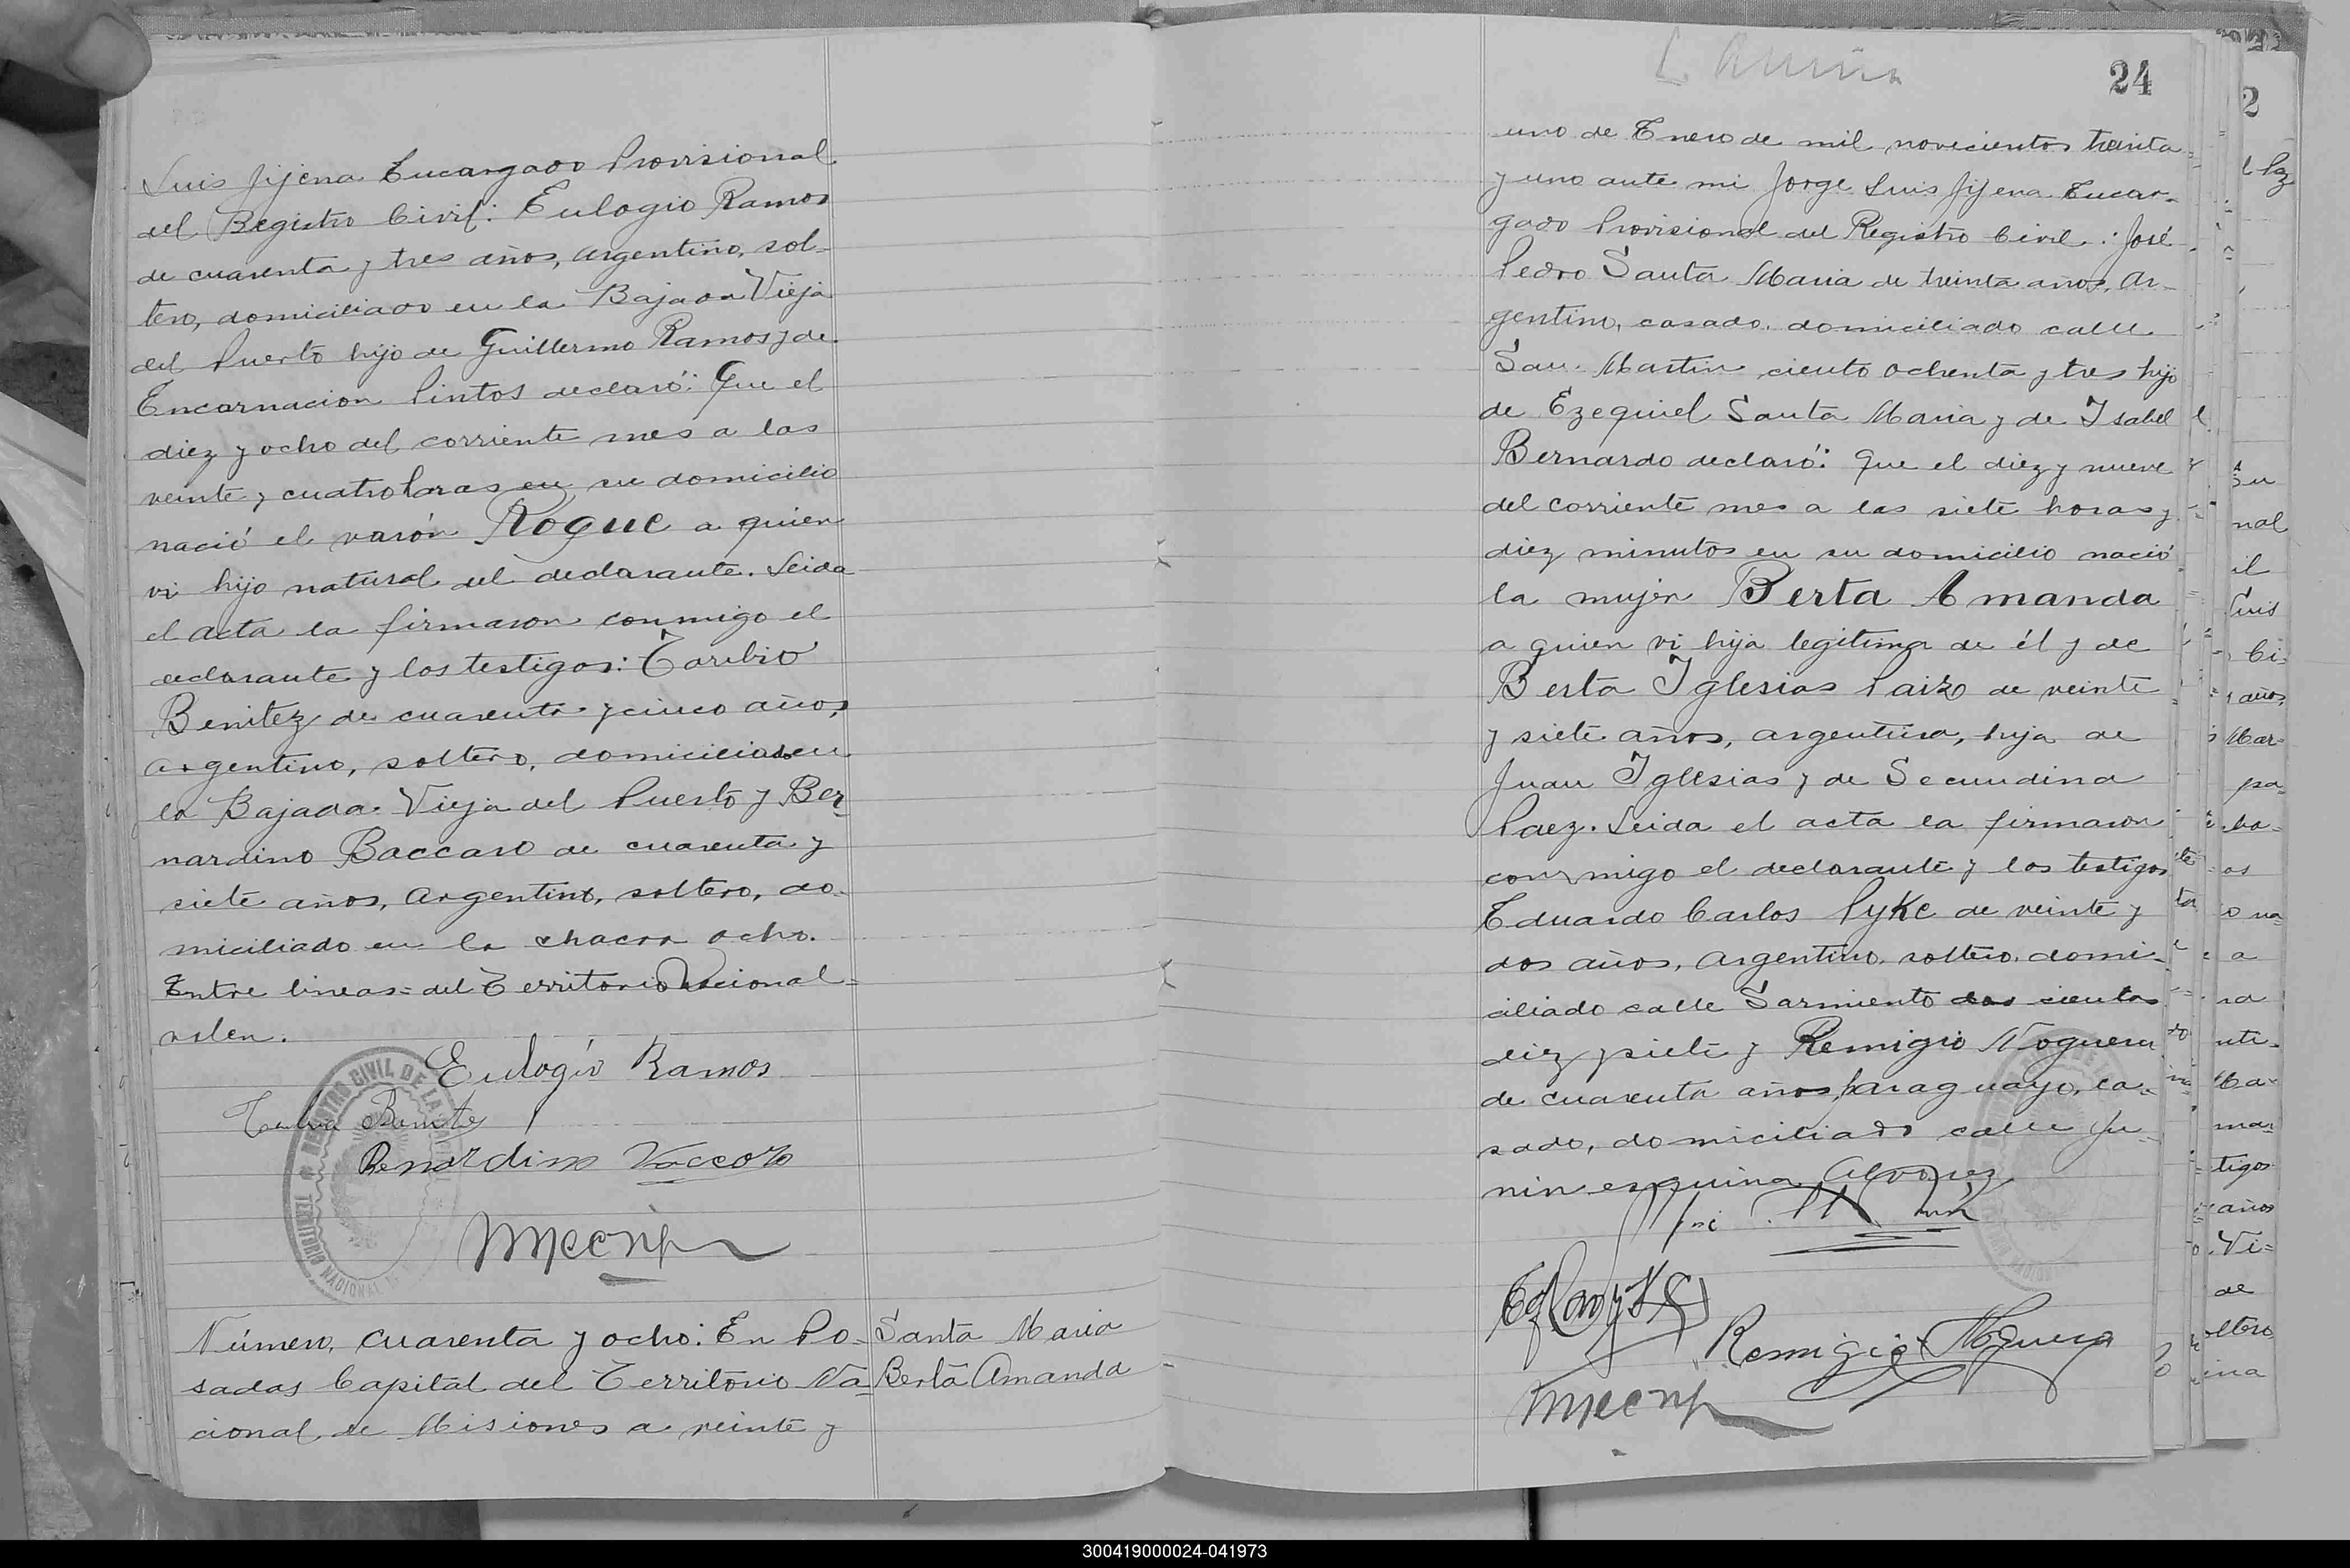 Luis Jijena Encargado Provisional
del Registro Civil: Eulogio Ramos
de cuarenta y tres años, argentino, sol-
tero, domiciliado en la Bajada Vieja
del Puerto hijo de Guillermo Ramos y de
Encarnacion Pintos declaró: Que el
diez y ocho del corriente mes a las
veinte y cuatro horas en su domicilio
nació el varón Roque a quien
vi hijo natural del declarante. Leida
el acta la firmaron conmigo el
declarante y los testigos: Toribio
Benitez de cuarenta y cinco años,
argentino, soltero, domiciliado en
la Bajada Vieja del Puerto y Ber-
nardino Baccaro de cuarenta y
siete años, argentino, soltero, do-
miciliado en la chacra ocho.
Entre lineas=del Territorio Nacional=
valen.
Eulogio Ramos
Benitez
Benardino Vaccaro
REGISTRO CIVIL DE LA
TERRITORIO NACIONAL
Número, cuarenta y ocho: En Po-
sadas Capital del Territorio Na-
cional de Misiones a veinte y
Santa Maria
Berta Amanda
24
uno de Enero de mil novecientos treinta
y uno ante mi Jorge Luis Jijena Encar-
gado Provisional del Registro Civil: José
Pedro Santa Maria de treinta años, ar-
gentino, casado, domiciliado calle
San Martin ciento ochenta y tres hijo
de Ezequiel Santa Maria y de Isabel
Bernardo declaró: Que el diez y nueve
del corriente mes a las siete horas y
diez minutos en su domicilio nació
la mujer Berta Amanda
a quien vi hija legitima de él y de
Berta Iglesias Paiz de veinte
y siete años, argentina, hija de
Juan Iglesias y de Secundina
Paez. Leida el acta la firmaron
conmigo el declarante y los testigos
Eduardo Carlos Pyke de veinte y
dos años, argentino, soltero, domi-
ciliado calle Sarmiento dos cientos
diez y siete y Remigio Noguera
de cuarenta años, paraguayo, ca-
sado, domiciliado calle Ju-
nin esquina Alvarez
Remigio Noguera
300419000024-041973